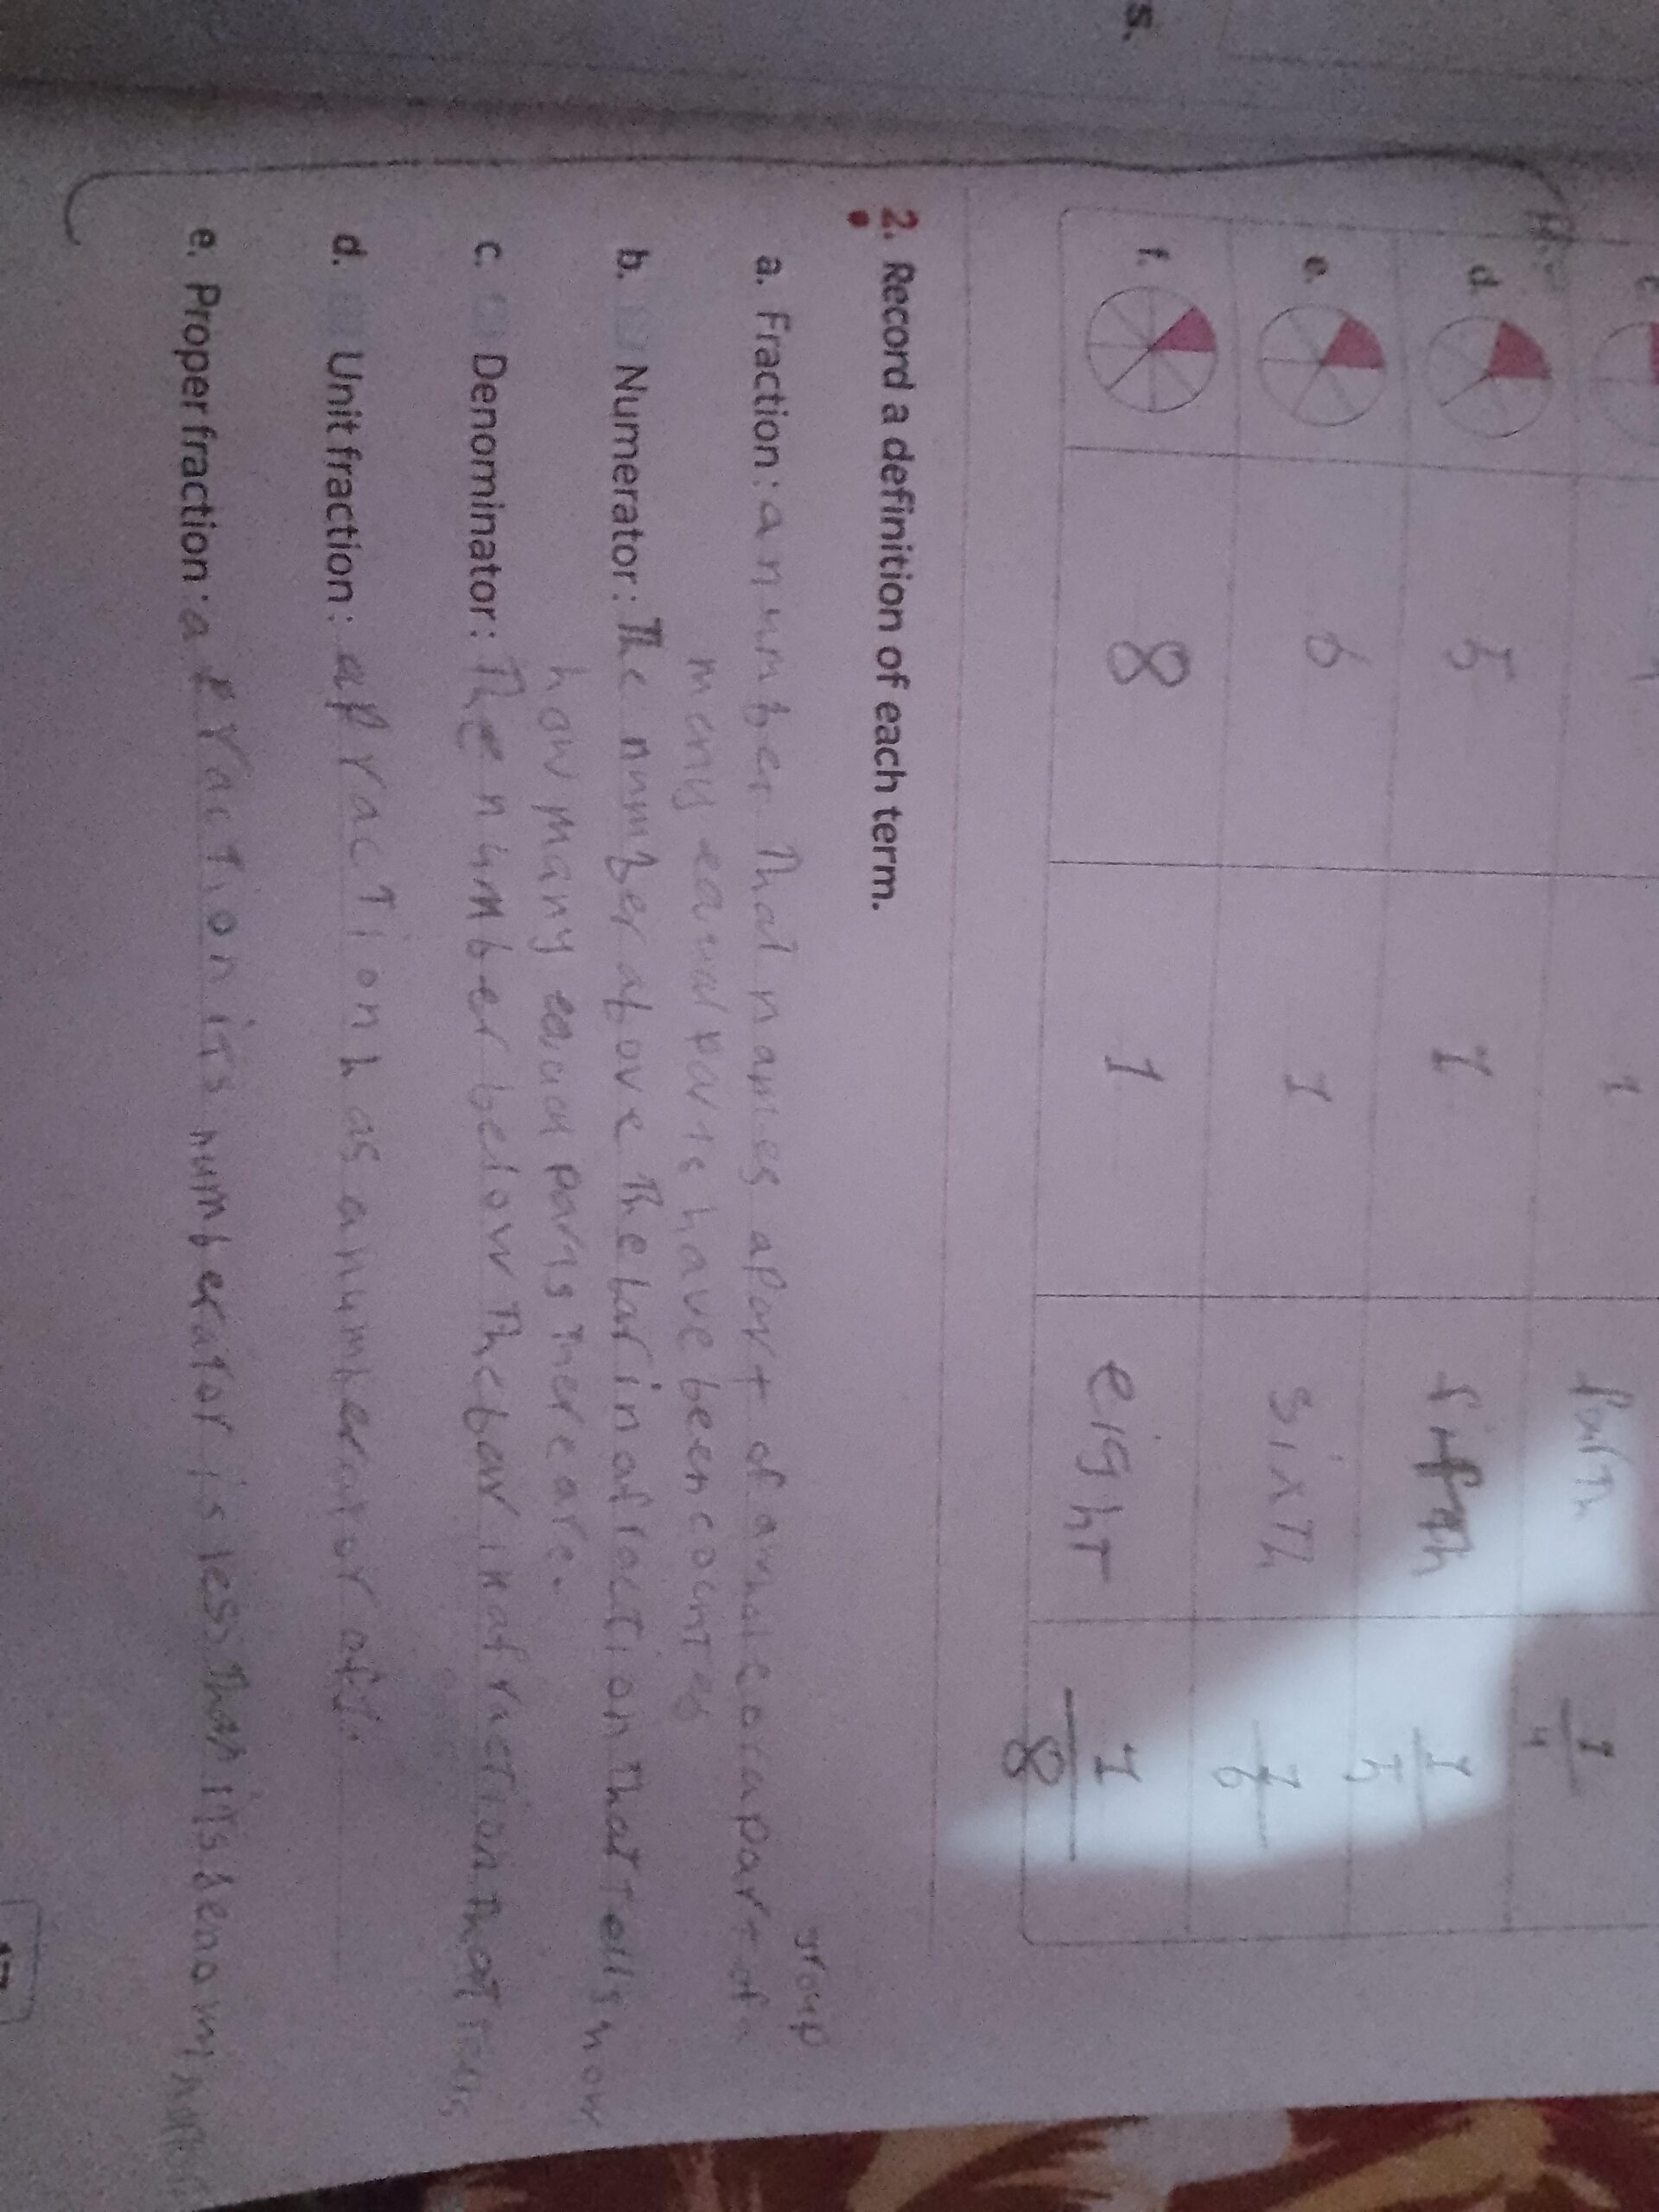 s.
c
1
fourth
1/4
d. 5 1 fifth 1/5
e. 6 1 sixth 1/6
f. 8 1 eight 1/8
2. Record a definition of each term.
group
a. Fraction : a number that names a part of a whole or a part of a
many equal parts have been counted
b. Numerator : The number above the bar in a fraction that tells how
how many equal parts there are.
c. Denominator : The number below the bar in a fraction that tells
d. Unit fraction : a fraction has a numberator of 1.
e. Proper fraction : a fraction its numberator is less than its